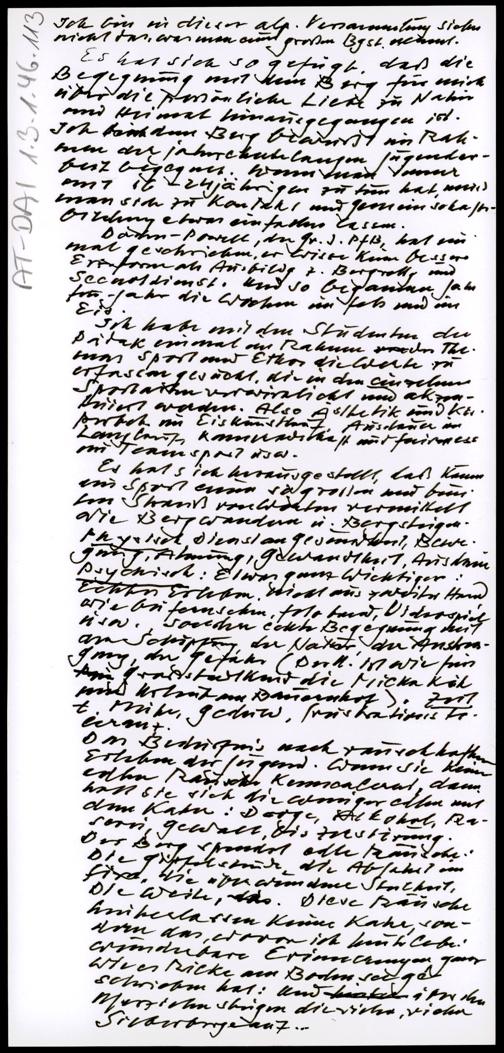 AT-DA1 1.3-1.46.113
Ich bin in dieser alp. Versammlung sicher
nicht das, was man einen großen Bgst. nennt.
Es hat sich so gefügt, daß die
Begegnung mit dem Berg für mich
über die persönliche Liebe zu Natur
und Heimat hinausgegangen ist.
Ich bin dem Berg beruflich im Rah-
men der jahrzehntelangen Jugendar-
beit begegnet. Wenn man immer
mit 16-24jährigen zu tun hat, muß
man sich zu Kontakt und Gemeinschafts-
bildung etwas einfallen lassen.
Baden-Powell, der Gr. d. Pfb, hat ein
mal geschrieben, er wisse keine bessere
Erz.form als Ausbildg z. Bergrettg und
Seenotdienst. Und so begannen Jahr
für Jahr die Wochen im Fels und im
Eis.
Ich habe mit den Studenten der
Pädak einmal im Rahmen des The-
mas Sport und Ethos die Werte zu
erfassen gesucht, die in den einzelnen
Sportarten verwirklicht und akzen-
tuiert werden. Also Ästhetik und Kör-
im Eiskunstlauf, Ausdauer im
Langlauf, Kameradschaft und Fairness
im Teamsport usw.
Es hat sich herausgestellt, daß kaum
ein Sport einen so großen und bun-
ten Strauß von Werten vermittelt
wie Bergwandern u. Bergsteigen.
Physisch, Dienst an Gesundheit, Bewe-
gung, Atmung, Gewandtheit, Ausdauer
Psychisch: Etwas ganz Wichtiges:
Echtes Erleben. Nicht aus zweiter Hand
wie bei Fernsehen, Foto und Videospiel
usw. sondern echte Begegnung mit
der Schöpfung, der Natur, der Anstren-
gung, der Gefahr (Denk: ist wie für
Großstadtkind die Milka Kuh
und Urlaub am Bauernhof). Zeit
t. Mühe, Geduld, Frustrationsto-
leranz.
Das Bedürfnis nach rauschhaftem
Erleben der Jugend. Wenn sie keine
edlen Räusche kennenlernt, dann
holt sie sich die weniger edlen mit
dem Kater: Droge, Alkohol, Ra-
serei, Gewalt, bis Zerstörung.
Der Berg spendet edle Räusche:
Die Gipfelstunde, die Abfahrt im
Firn, die überwundene Steilheit,
Die Weite, Diese Räusche
hinterlassen keine Kater, son-
dern das, wovon ich heute lebe:
wunderbare Erinnerungen, ganz
wie es Ricke am Bodensee ge-
schrieben hat: Und über den
steigen die vielen, vielen
Silberberge auf...